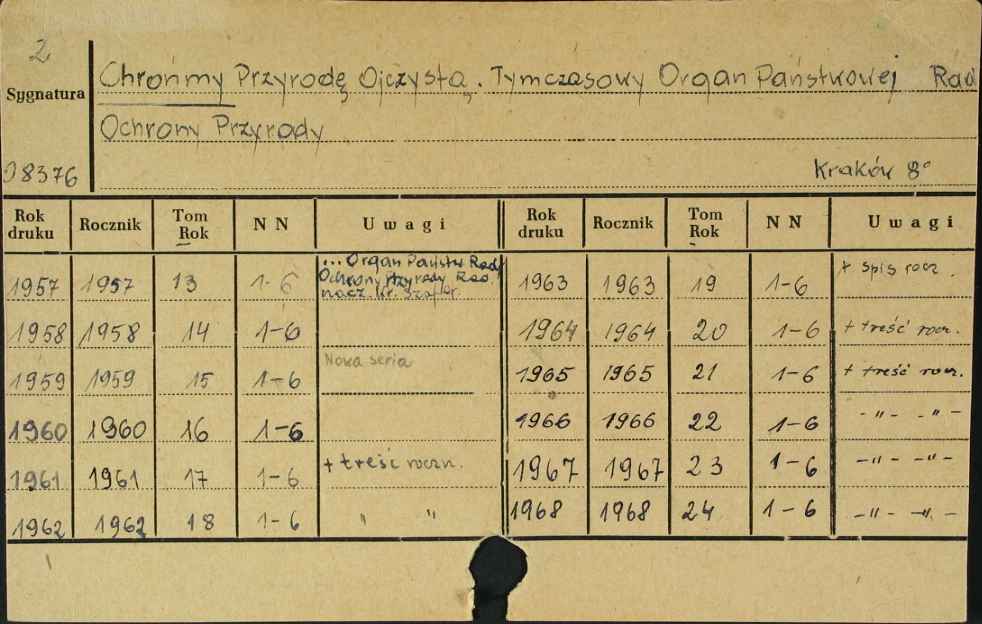 2
Sygnatura
Chrońmy Przyrodę Ojczystą. Tymczasowy Organ Państwowej Rad
Ochrony Przyrody
08376
Kraków 8°
Rok druku Rocznik Tom Rok NN Uwagi Rok druku Rocznik Tom Rok NN Uwagi
1957 1957 13 1-6 ...Organ Państw Rady Ochrony Przyrody Red. nacz. 1963 1963 19 1-6 + spis rocz.
1958 1958 14 1-6 1964 1964 20 1-6 + treść roczn.
1959 1959 15 1-6 Nowa seria 1965 1965 21 1-6 + treść roczn.
1960 1960 16 1-6 1966 1966 22 1-6 -"- -"-
1961 1961 17 1-6 + treść roczn. 1967 1967 23 1-6 -"- -"-
1962 1962 18 1-6 " " 1968 1968 24 1-6 -"- -"-